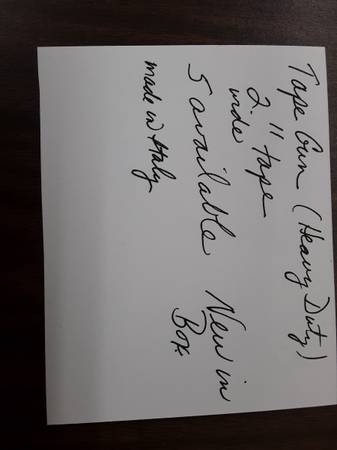 Tape Gun (Heavy Duty)
2" tape
wide
5 available New in
Box.
made in Italy